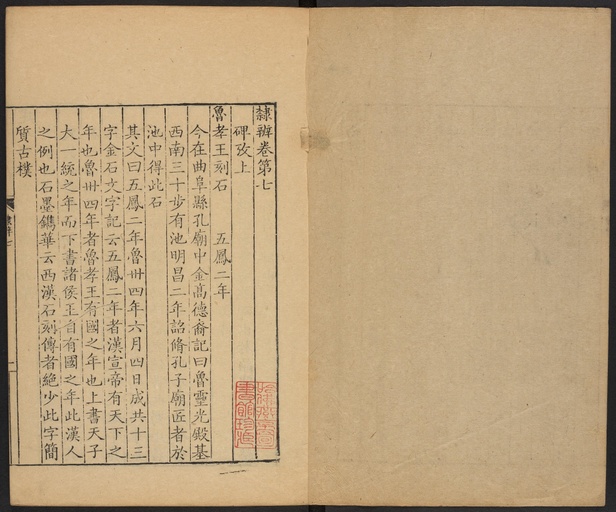 隸辨卷第七
碑攷上
魯孝王刻石 五鳳二年
今在曲阜縣孔廟中金高德裔記曰魯靈光殿基
西南三十步有池明昌二年詔脩孔子廟匠者於
池中得此石
其文曰五鳳二年魯卅四年六月四日成共十三
字金石文字記云五鳳二年者漢宣帝有天下之
年也魯卅四年者魯孝王有國之年也上書天子
大一統之年而下書諸侯王自有國之年此漢人
之例也石墨鐫華云西漢石刻傳者絶少此字簡
質古樸